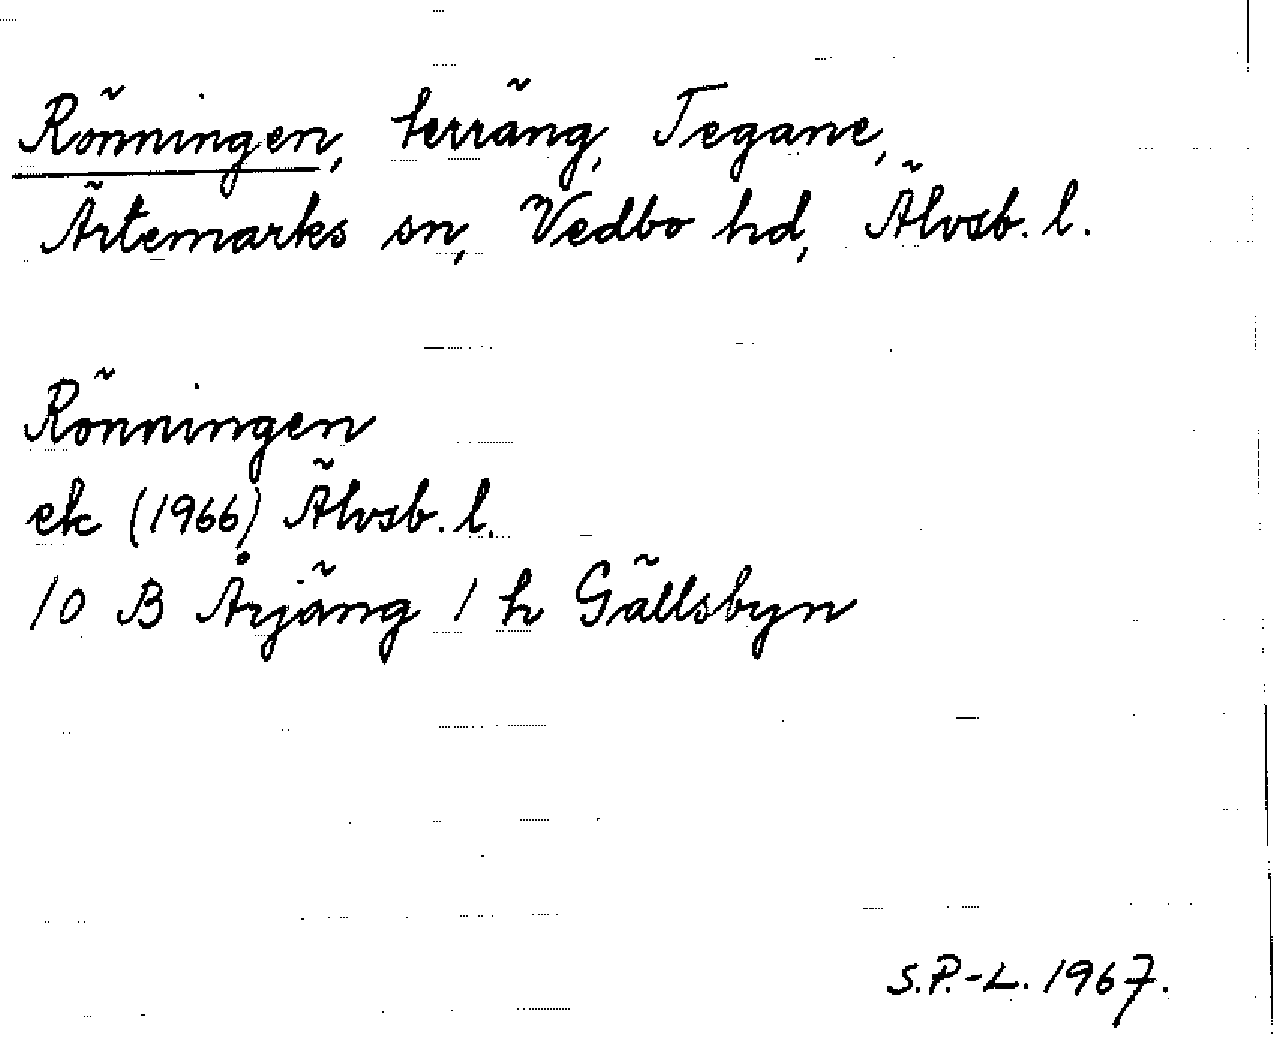 Rönningen, terräng, Tegane,
Ärtemarks sn, Vedbo hd, Älvsb. l.
Rönningen
ek (1966) Älvsb. l.
10 B Årjäng 1 h Gällsbyn
S.P.-L. 1967.